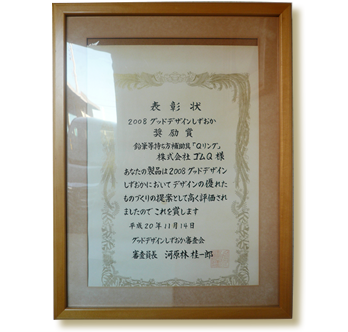 表彰状
2008グッドデザインしずおか
奨励賞
鉛筆等持ち方補助具「Qリング」
株式会社ゴムQ様
あなたの製品は2008グッドデザイン
しずおかにおいてデザインの優れた
ものづくりの提案として高く評価され
ましたのでこれを賞します
平成20年11月14日
グッドデザインしずおか審査会
審査員長 河原林桂一郎